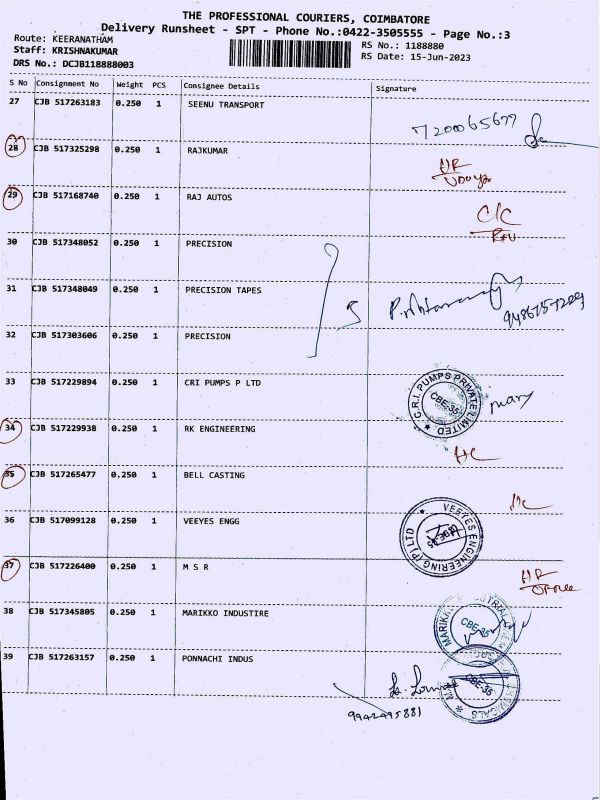 THE PROFESSIONAL COURIERS, COIMBATORE
Delivery Runsheet - SPT - Phone No.:0422-3505555 - Page No.:3
Route: KEERANATHAM
RS No.: 1188880
Staff: KRISHNAKUMAR
RS Date: 15-Jun-2023
DRS No.: DCJB118888003
S No Consignment No Weight PCS Consignee Details Signature
27 CJB 517263183 0.250 1 SEENU TRANSPORT
7200065677
28 CJB 517325298 0.250 1 RAJKUMAR
29 CJB 517168740 0.250 1 RAJ AUTOS
C/C
30 CJB 517348052 0.250 1 PRECISION
31 CJB 517348049 0.250 1 PRECISION TAPES
32 CJB 517303606 0.250 1 PRECISION
33 CJB 517229894 0.250 1 CRI PUMPS P LTD
C.R.I. PUMPS PRIVATE LIMITED
CBE-35
mary
34 CJB 517229938 0.250 1 RK ENGINEERING
35 CJB 517265477 0.250 1 BELL CASTING
36 CJB 517099128 0.250 1 VEEYES ENGG
VEEYES ENGINEERING (P) LTD
37 CJB 517226400 0.250 1 M S R
38 CJB 517345805 0.250 1 MARIKKO INDUSTIRE
CBE-35
39 CJB 517263157 0.250 1 PONNACHI INDUS
CBE-35
9942495881